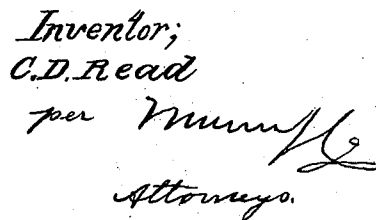 Inventor;
C.D. Read
per Munn & Co
Attorneys.